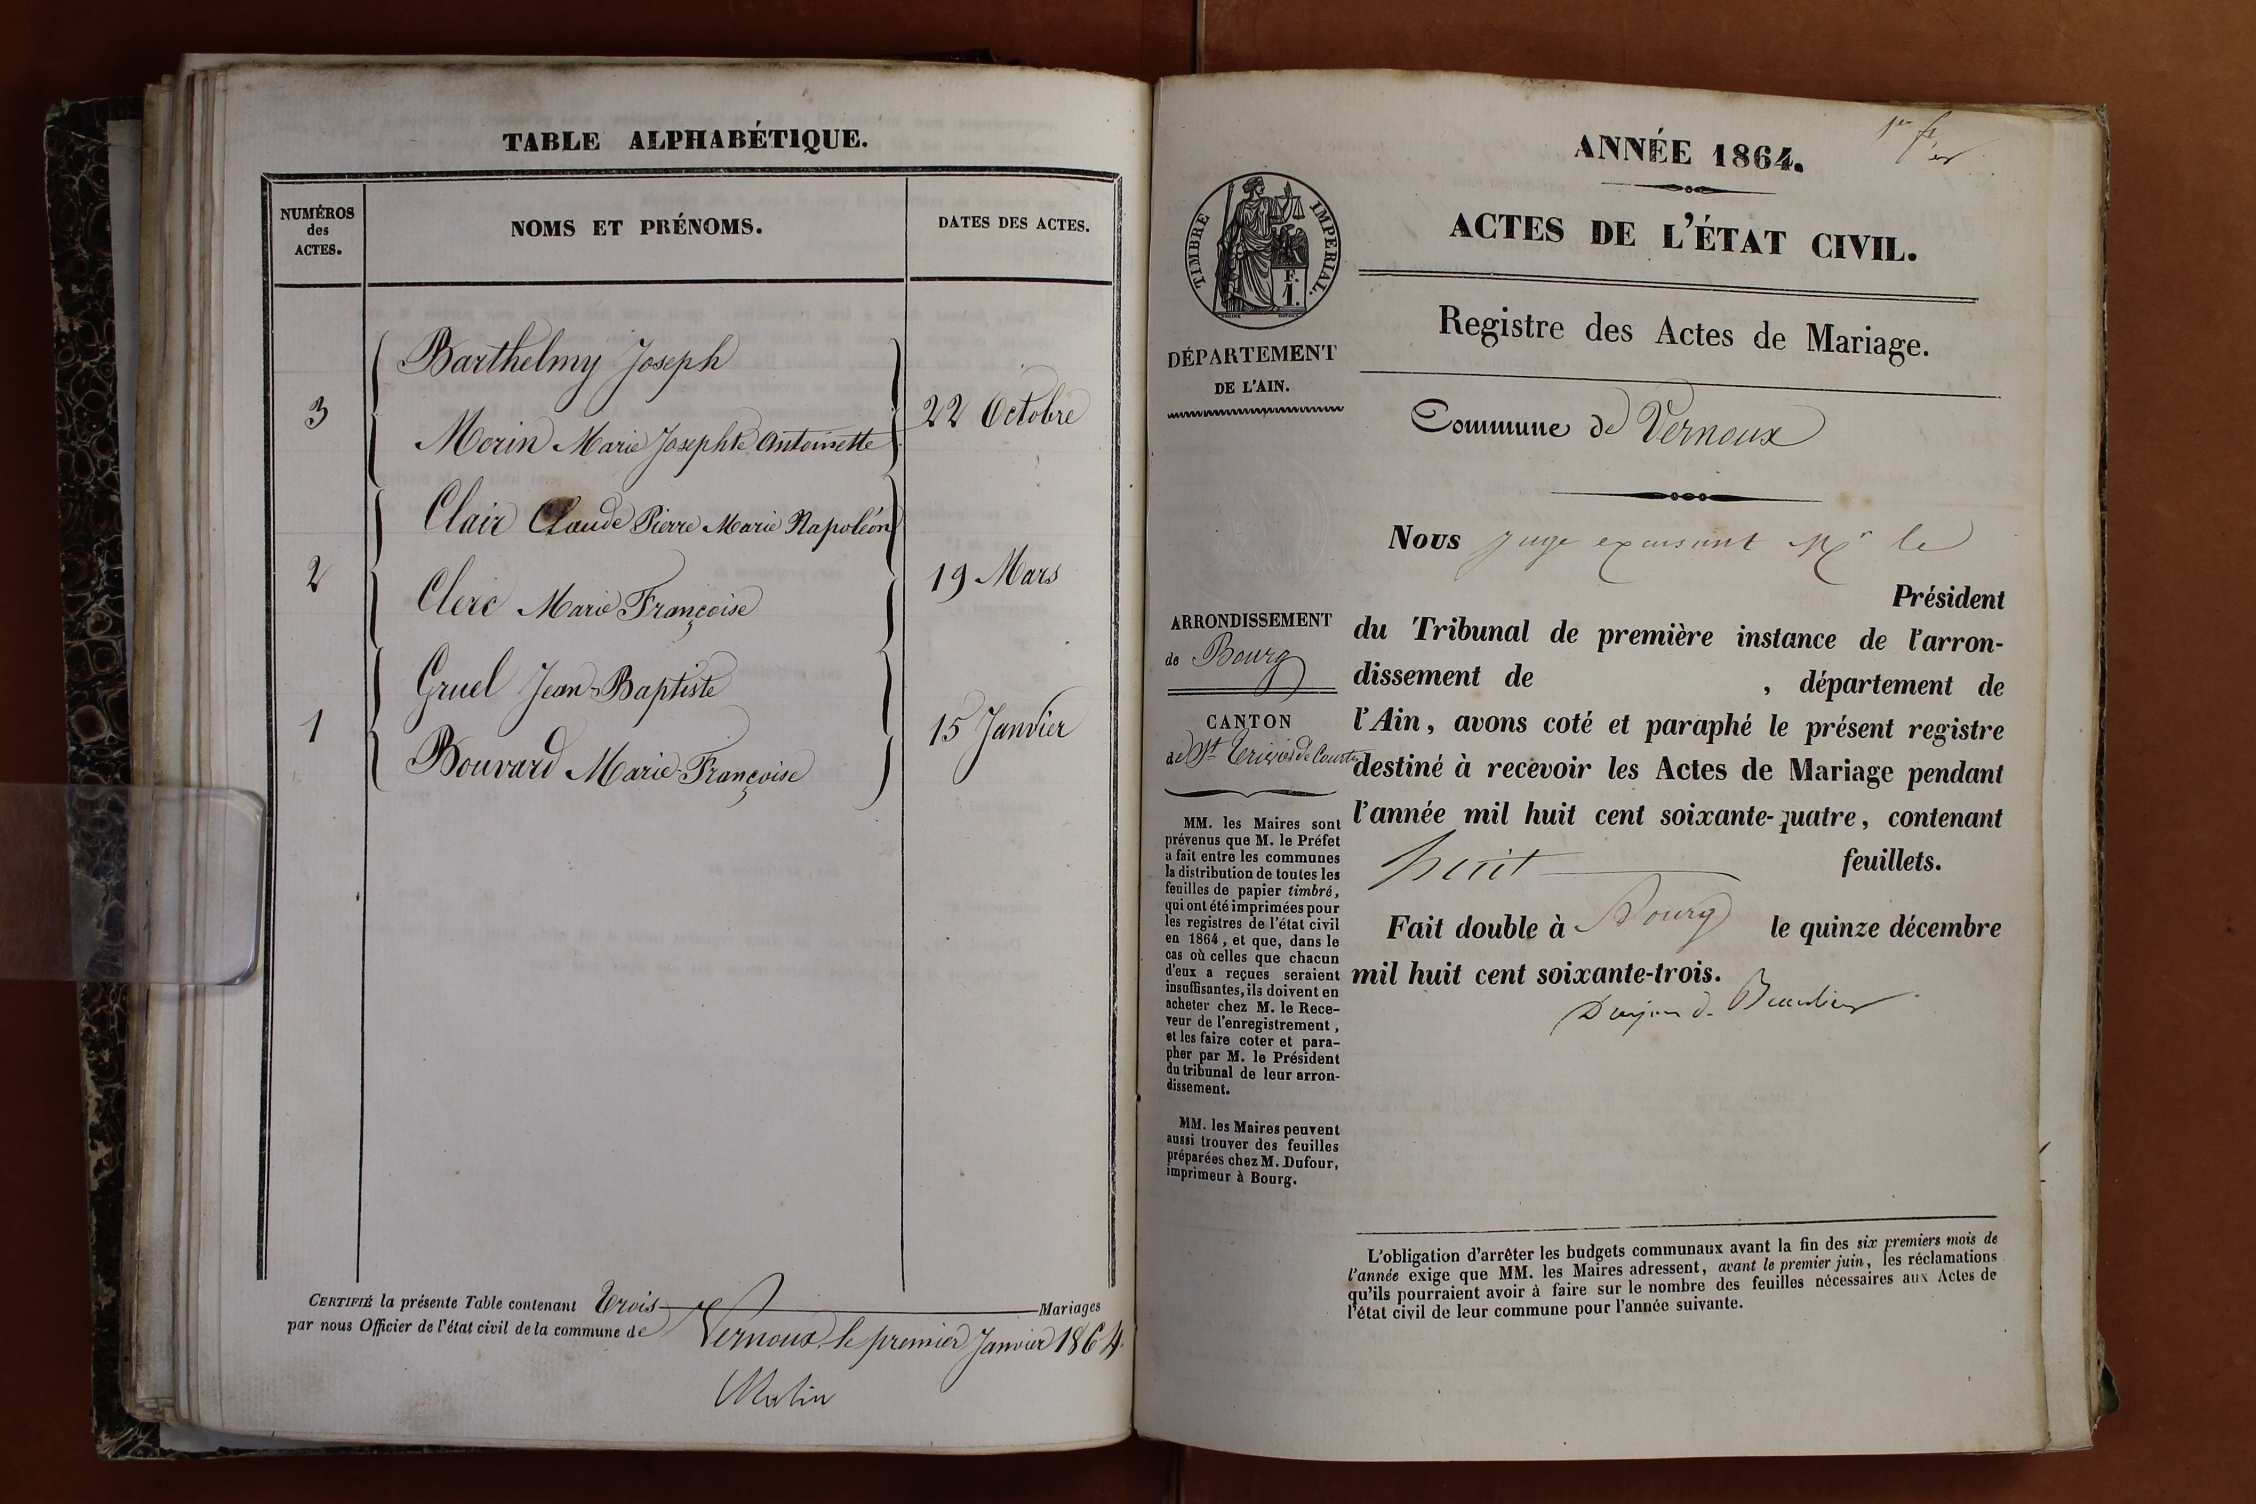 TABLE ALPHABÉTIQUE.
NUMÉROS des ACTES.
NOMS ET PRÉNOMS.
DATES DES ACTES.
Barthelmy Joseph
3
22 Octobre
Morin Marie Josephte Antoinette
Clair Claude Pierre Marie Napoléon
2
19 Mars
Clerc Marie Françoise
Gruel Jean-Baptiste
1
15 Janvier
Bouvard Marie-Françoise
CERTIFIÉ la présente Table contenant trois Mariages
par nous Officier de l'état civil de la commune de Vernoux, le premier Janvier 1864.
ANNÉE 1864.
ACTES DE L'ÉTAT CIVIL.
TIMBRE IMPERIAL.
F.
1.
Registre des Actes de Mariage.
DÉPARTEMENT
DE L'AIN.
Commune de Vernoux
Nous Juge excusant Mr le
Président
ARRONDISSEMENT
de Bourg
du Tribunal de première instance de l'arron-
dissement de , département de
l'Ain, avons coté et paraphé le présent registre
CANTON
de St Trivier de Courtes
destiné à recevoir les Actes de Mariage pendant
l'année mil huit cent soixante-quatre, contenant
huit feuillets.
Fait double à Bourg le quinze décembre
mil huit cent soixante-trois.
MM. les Maires sont
prévenus que M. le Préfet
a fait entre les communes
la distribution de toutes les
feuilles de papier timbré,
qui ont été imprimées pour
les registres de l'état civil
en 1864, et que, dans le
cas où celles que chacun
d'eux a reçues seraient
insuffisantes, ils doivent en
acheter chez M. le Rece-
veur de l'enregistrement,
et les faire coter et para-
pher par M. le Président
du tribunal de leur arron-
dissement.
MM. les Maires peuvent
aussi trouver des feuilles
préparées chez M. Dufour,
imprimeur à Bourg.
L'obligation d'arrêter les budgets communaux avant la fin des six premiers mois de
l'année exige que MM. les Maires adressent, avant le premier juin, les réclamations
qu'ils pourraient avoir à faire sur le nombre des feuilles nécessaires aux Actes de
l'état civil de leur commune pour l'année suivante.